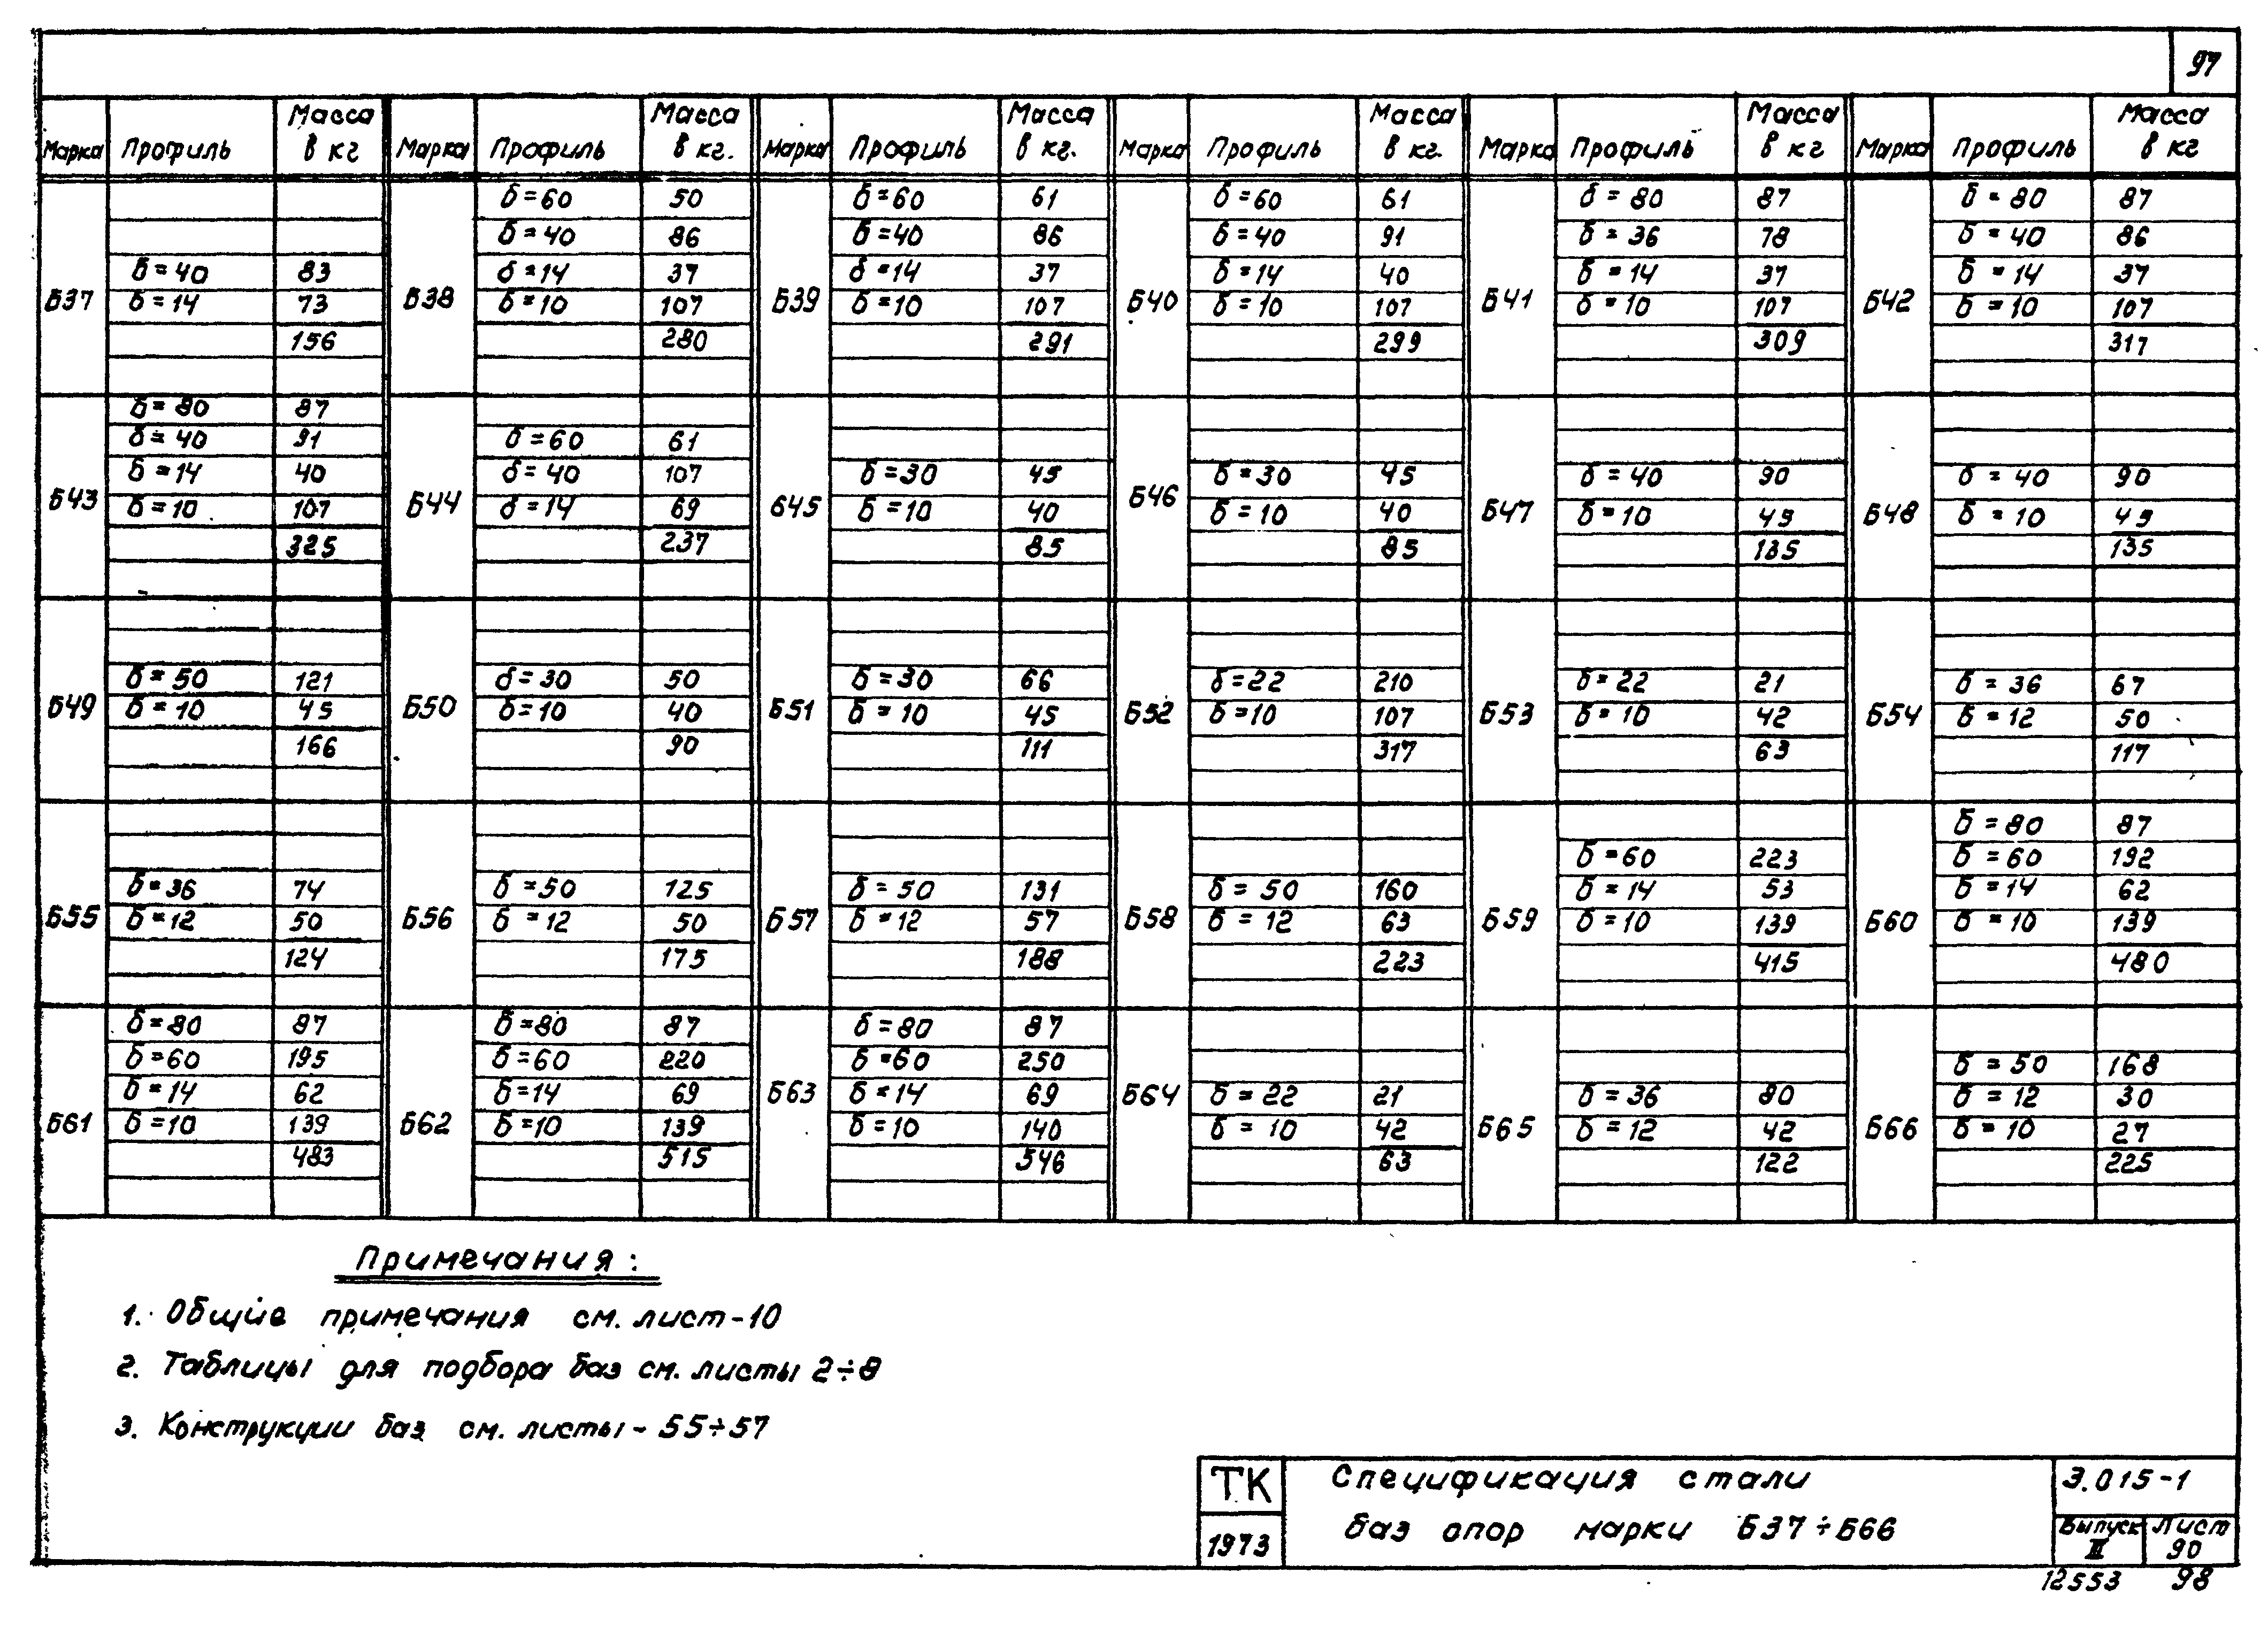 97
Марка Профиль Масса в кг Марка Профиль Масса в кг. Марка Профиль Масса в кг. Марка Профиль Масса в кг. Марка Профиль Масса в кг Марка Профиль Масса в кг
Б37
δ=40 83
δ=14 73
156
Б38
δ=60 50
δ=40 86
δ=14 37
δ=10 107
280
Б39
δ=60 61
δ=40 86
δ=14 37
δ=10 107
291
Б40
δ=60 61
δ=40 91
δ=14 40
δ=10 107
299
Б41
δ=80 87
δ=36 78
δ=14 37
δ=10 107
309
Б42
δ=80 87
δ=40 86
δ=14 37
δ=10 107
317
Б43
δ=80 87
δ=40 91
δ=14 40
δ=10 107
325
Б44
δ=60 61
δ=40 107
δ=14 69
237
Б45
δ=30 45
δ=10 40
85
Б46
δ=30 45
δ=10 40
85
Б47
δ=40 90
δ=10 45
135
Б48
δ=40 90
δ=10 45
135
Б49
δ=50 121
δ=10 45
166
Б50
δ=30 50
δ=10 40
90
Б51
δ=30 66
δ=10 45
111
Б52
δ=22 210
δ=10 107
317
Б53
δ=22 21
δ=10 42
63
Б54
δ=36 67
δ=12 50
117
Б55
δ=36 74
δ=12 50
124
Б56
δ=50 125
δ=12 50
175
Б57
δ=50 131
δ=12 57
188
Б58
δ=50 160
δ=12 63
223
Б59
δ=60 223
δ=14 53
δ=10 139
415
Б60
δ=80 87
δ=60 192
δ=14 62
δ=10 139
480
Б61
δ=80 87
δ=60 195
δ=14 62
δ=10 139
483
Б62
δ=80 87
δ=60 220
δ=14 69
δ=10 139
515
Б63
δ=80 87
δ=60 250
δ=14 69
δ=10 140
546
Б64
δ=22 21
δ=10 42
63
Б65
δ=36 80
δ=12 42
122
Б66
δ=50 168
δ=12 30
δ=10 27
225
Примечания:
1. Общие примечания см. лист-10
2. Таблицы для подбора баз см. листы 2÷8
3. Конструкции баз см. листы - 55÷57
ТК
1973
Спецификация стали
баз опор марки Б37÷Б66
3.015-1
Выпуск Лист
III 90
12553 98